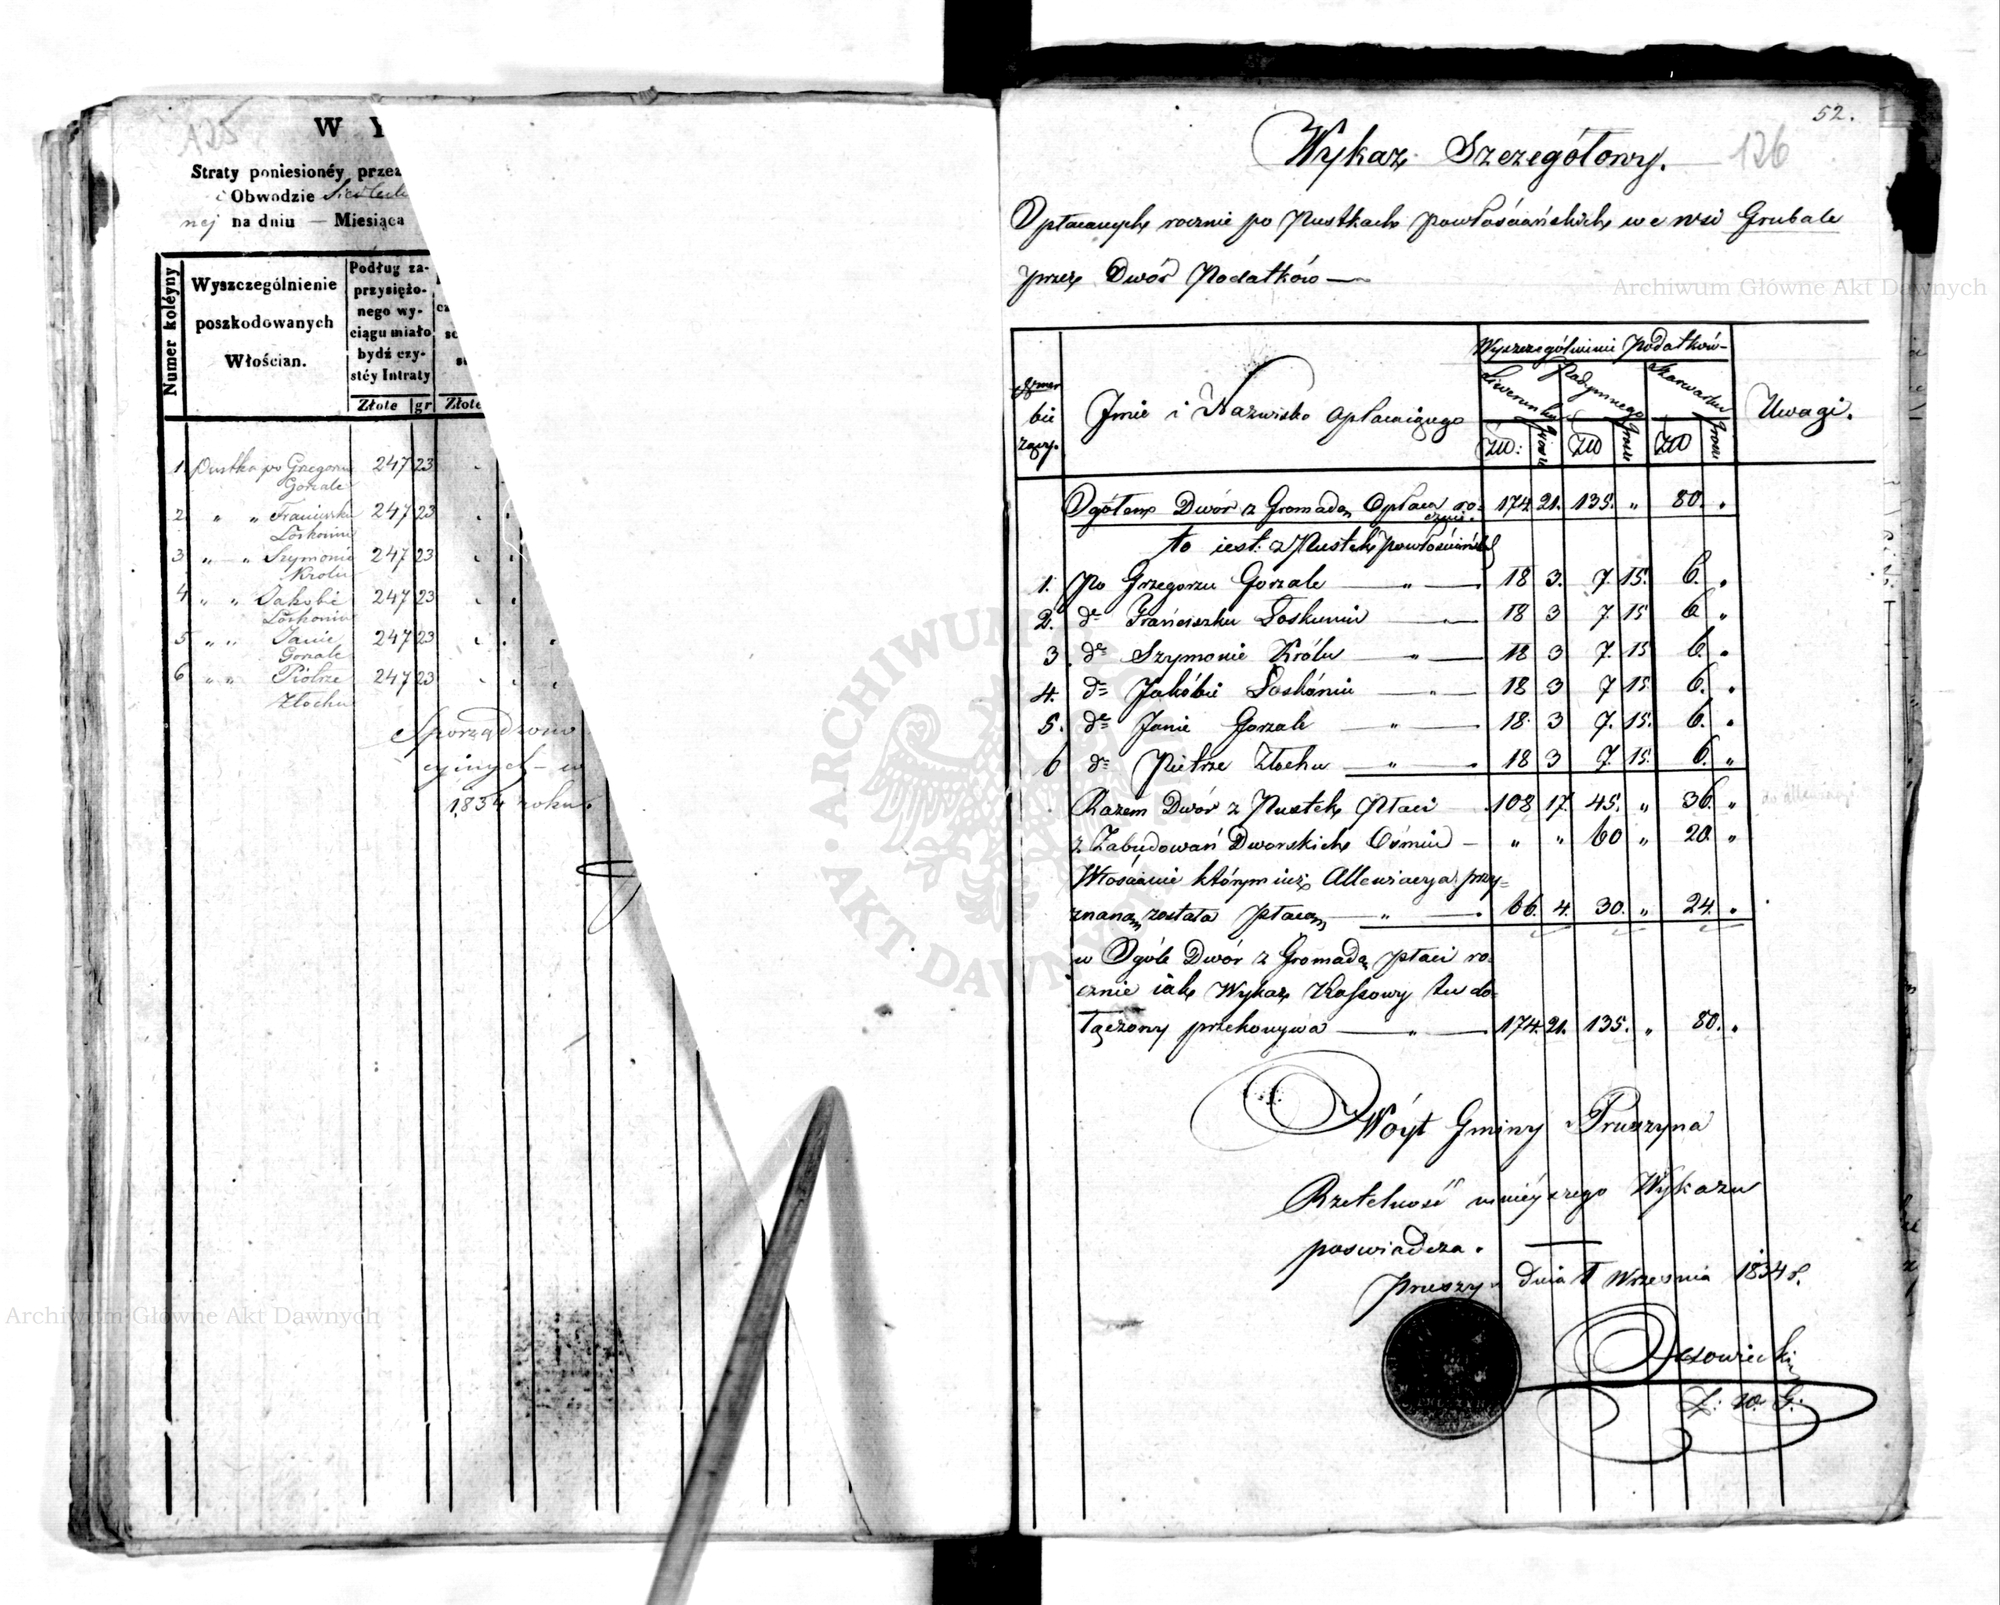 125
W Y
Straty poniesionéy przez
Obwodzie Siedlec
nej na dniu — Miesiąca
Numer koléyny
Wyszczególnienie poszkodowanych Włościan.
Podług zaprzysiężonego wyciągu miało bydź czystéy Intraty
Złote gr Złote
1 Pustka po Grzegorzu 247 23
Gorzale
2 „ „ Franciszku 247 23
Łoskoniu
3 „ „ Szymonie 247 23
Krolu
4 „ „ Jakobie 247 23
Łoskoniu
5 „ „ Janie 247 23
Gorzale
6 „ „ Piotrze 247 23
Złochu
Sporządzono
cyinych w
1834 roku.
52.
126
Wykaz Szczegółowy.
Opłacanych rocznie po Pustkach powłościańskich we wsi Grubale
przez Dwór Podatków —
Numer bie zący.
Jmie i Nazwisko opłacaiącego
Wyszczególnienie Podatków
Liwerunku Podymnego Szarwarku
Uwagi.
Zł: Grosze Zł Grosze Zł Grosze
Ogółem Dwór z Gromadą Opłaca ro- 174 21. 135. „ 80. „
cznie.
to iest: z Pustek powłościańsk
1. Po Grzegorzu Gorzale — „ — 18 3. 7. 15. 6. „
2. do Franciszku Łoskoniu „ — 18 3 7. 15 6 „
3. do Szymonie Królu — „ — 18 3 7. 15 6. „
4. do Jakóbie Łoskóniu — „ — 18 3 7 15 6. „
5. do Janie Gorzale — „ — 18. 3 7. 15. 6. „
6 do Pietrze Złochu — „ — 18 3 7. 15. 6. „
Razem Dwór z Pustek Płaci 108 17. 45. „ 36. „
z Zabudowań Dworskich Ośmiu — „ „ 60 „ 20. „
Włościanie którym iuż Allewiacya przy=
znaną została płacą — „ — 66. 4. 30. „ 24. „
w Ogóle Dwór z Gromadą płaci ro-
cznie iak Wykaz Kassowy tu do-
łączony przekonywa — „ — 174. 21. 135. „ 80. „
Wóyt Gminy Pruszyna
Rzetelność ninieyszego Wykazu
poswiadcza. —
Pruszyn dnia 1 Wrzesnia 1834 r.
Z: W: G:
Archiwum Główne Akt Dawnych
Archiwum Główne Akt Dawnych
ARCHIWUM GŁÓWNE AKT DAWNYCH